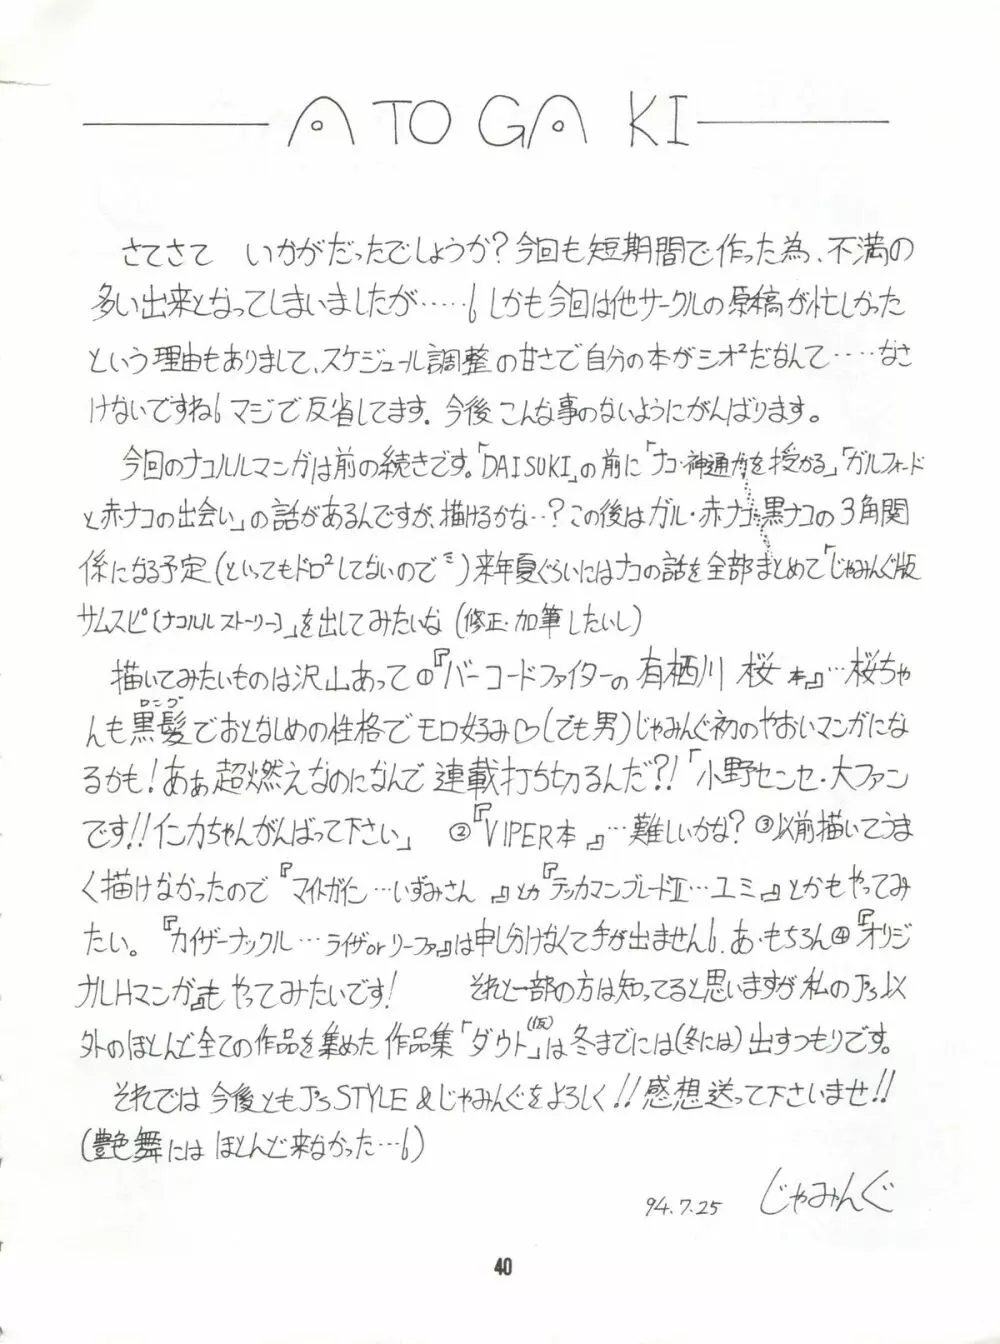 ATOGAKI
さてさて　いかがだったでしょうか?今回も短期間で作った為、不満の
多い出来となってしまいましたが……しかも今回は他サークルの原稿が忙しかった
という理由もありまして、スケジュール調整の甘さで自分の本がシオ²だなんて‥‥なさ
けないですねマジで反省してます.今後こんな事のないようにがんばります。
今回のナコルルマンガは前の続きです。「DAISUKI」の前に「ナコ・神通力を授かる」「ガルフォード
と赤ナコの出会い」の話があるんですが、描けるかな‥?この後はガル・赤ナコ・黒ナコの3角関
係になる予定(といってもドロ²してないので)来年夏ぐらいにはナコの話を全部まとめて「じゃみんぐ版
サムスピ〔ナコルルストーリー〕」を出してみたいな(修正・加筆したいし)
描いてみたいものは沢山あって①『バーコードファイターの有栖川 桜 本』…桜ちゃ
ロング
んも黒髪でおとなしめの性格でモロ好み♡(でも男)じゃみんぐ初のやおいマンガにな
るかも!あぁ超燃えなのになんで連載打ち切るんだ?!「小野センセ・大ファン
です!!インカちゃんがんばって下さい」 ②『VIPER本』…難しいかな?③以前描いてうま
く描けなかったので『マイトガイン…いずみさん』とか『テッカマンブレードⅡ…ユミ』とかもやってみ
たい。『カイザーナックル…ライザorリーファ』は申し分けなくて手が出ません.あ・もちろん④『オリジ
ナルHマンガ』もやってみたいです! それと一部の方は知ってると思いますが私のJ's以
外のほとんど全ての作品を集めた作品集「ダウト(仮)」は冬までには(冬には)出すつもりです。
それでは今後ともJ's STYLE &じゃみんぐをよろしく!!感想送って下さいませ!!
(艶舞にはほとんど来なかった…)
94.7.25 じゃみんぐ
40